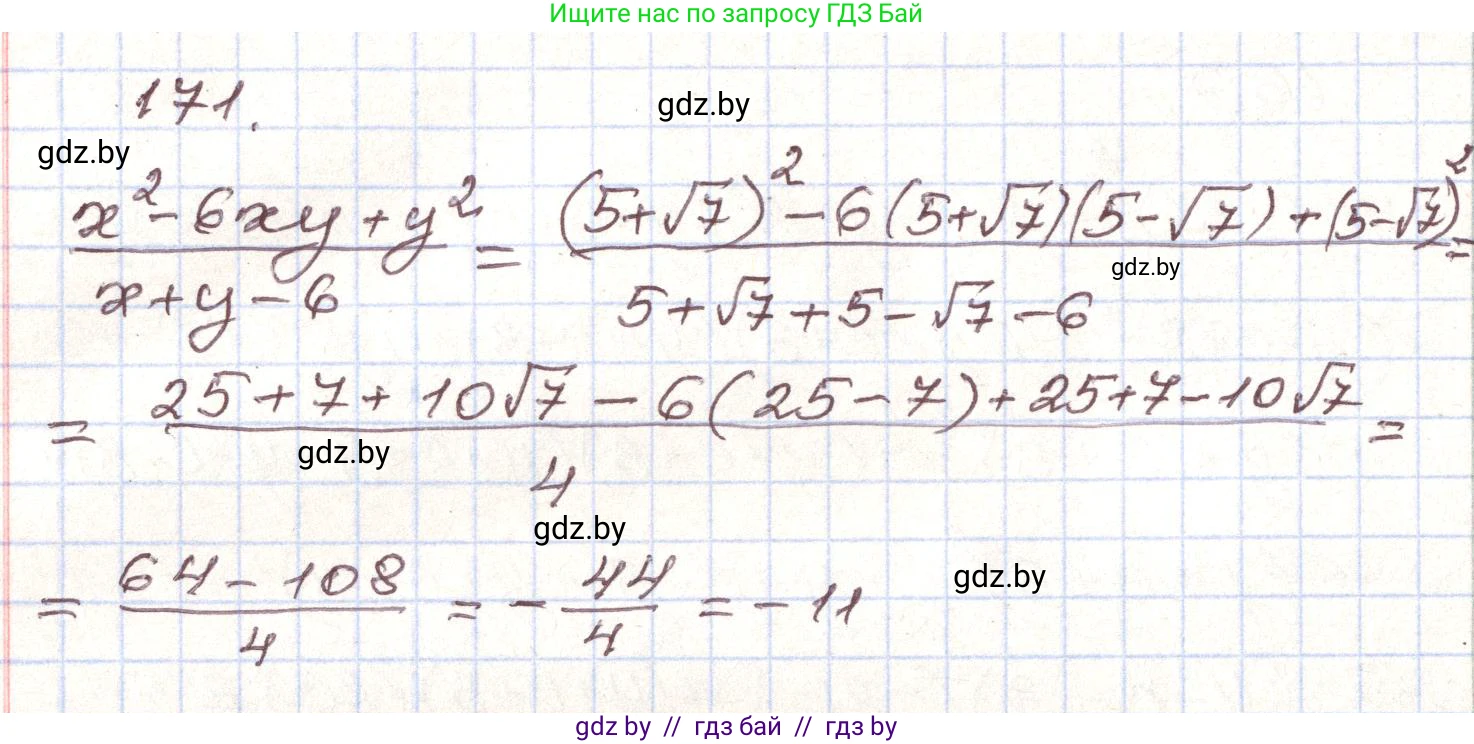 Ищите нас по запросу ГДЗ Бай
171.
gdz.by
gdz.by
(x² - 6xy + y²)/(x + y - 6) = ((5+√7)² - 6(5+√7)(5-√7) + (5-√7)²)/(5+√7+5-√7-6) =
gdz.by
= (25+7+10√7 - 6(25-7) + 25+7-10√7)/4 =
gdz.by
gdz.by
= (64-108)/4 = -44/4 = -11
gdz.by
gdz by // гдз бай // гдз by